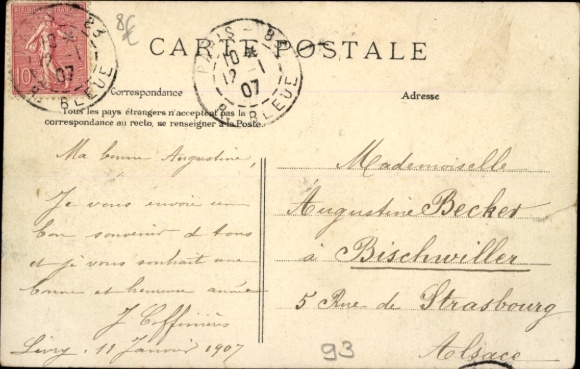 8€
CARTE POSTALE
PARIS
R. BLEUE
10
12 - 1
07
Correspondance
Adresse
Tous les pays étrangers n'acceptent pas la
correspondance au recto, se renseigner à la Poste.
Ma bonne Augustine,
Je vous envoie un
bon souvenir d tous
et je vous souhait une
bonne et heureuse année
Livry, 11 Janvier 1907
Mademoiselle
Augustine Becker
à Bischwiller
5 Rue de Strasbourg
Alsace
93